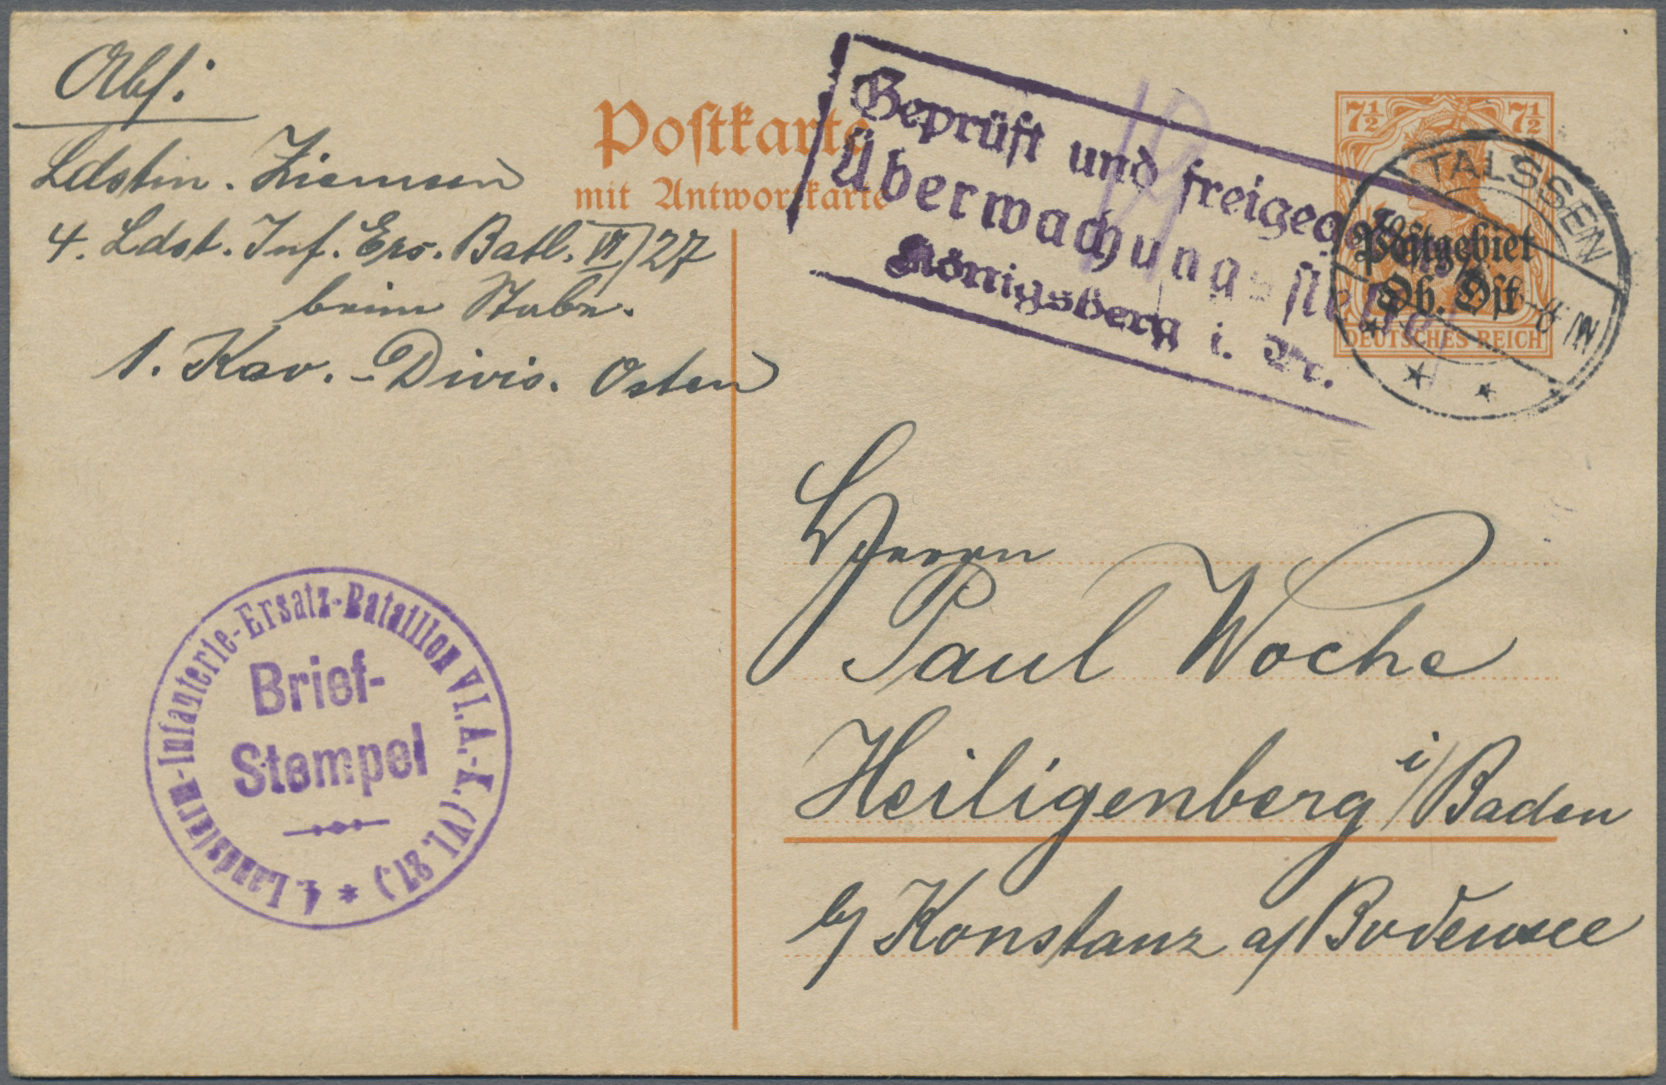 Abs:
Ldstm. Ziemsen
4. Ldst. Inf. Ers. Batl. VI/27
beim Stabe.
1. Kav.-Divis. Osten
Postkarte
mit Antwortkarte
Geprüft und freigegeben
Überwachungsstelle
Königsberg i. Pr.
7½ 7½
Postgebiet
Ob. Ost
DEUTSCHES REICH
TALSSEN
Herrn
Paul Woche
Heiligenberg i/Baden
b/ Konstanz a/Bodensee
4. Landsturm-Infanterie-Ersatz-Bataillon VI. A.-K. (VI. 27.)
Brief-
Stempel